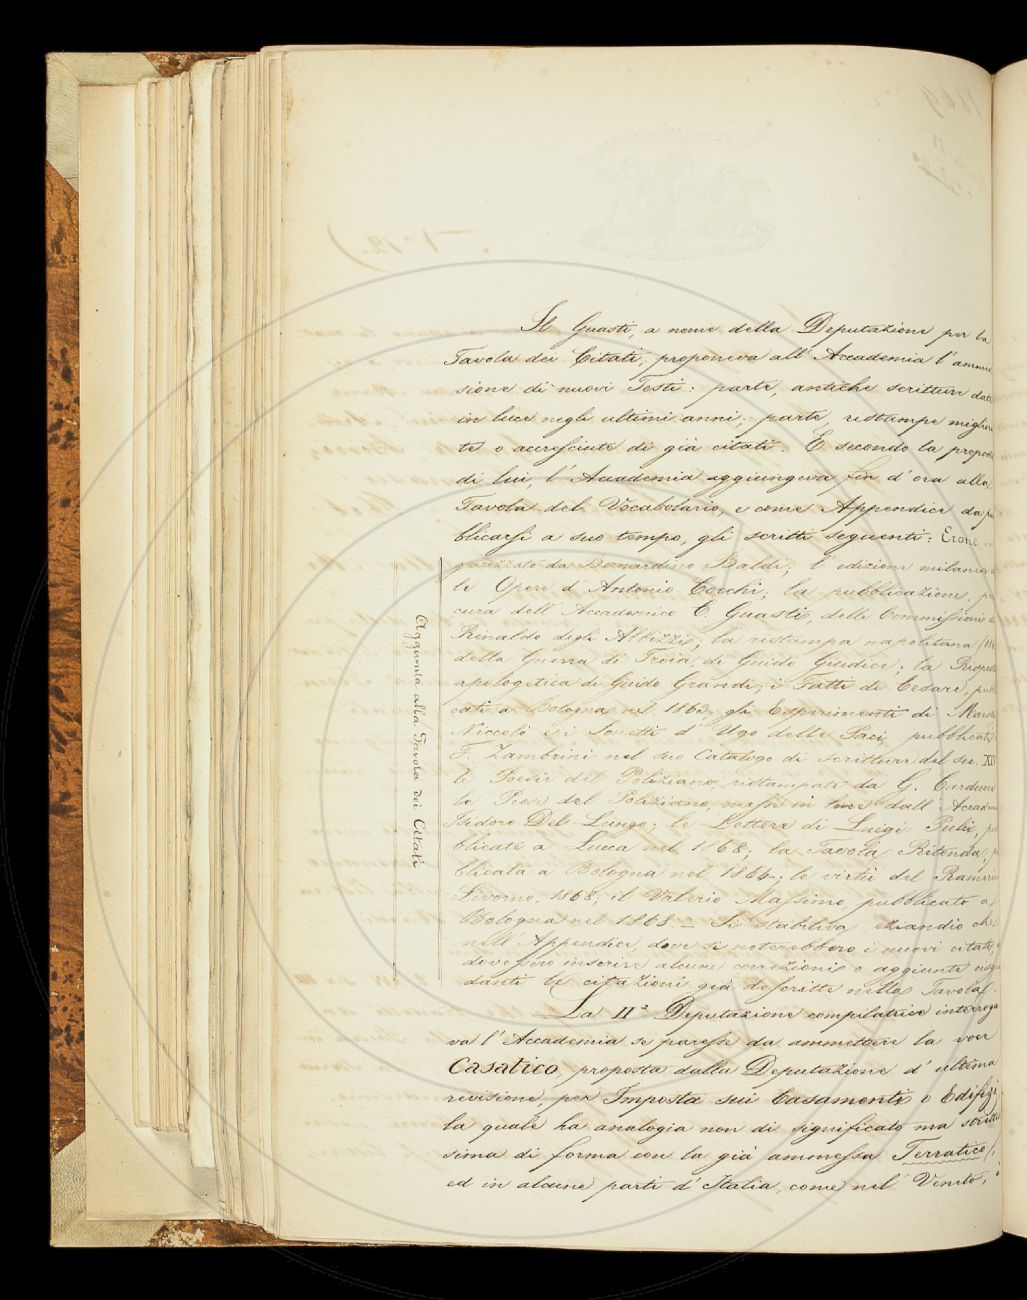 Il Guasti, a nome della Deputazione per la
Tavola dei Citati, proponeva all'Accademia l'ammis
sione di nuovi Testi: parte, antiche scritture date
in luce negli ultimi anni; parte ristampe migliora
te o accresciute di già citati. E secondo la propos
di lui, l'Accademia aggiungeva fin d'ora alla
Tavola del Vocabolario, e come Appendice da pu
blicarsi a suo tempo, gli scritti seguenti: Erone,
garizzato da Bernardino Baldi; l'edizione milanese
le Opere d'Antonio Cocchi; la pubblicazione, p
cura dell'Accademico C. Guasti, delle Commissioni
Rinaldo degli Albizzi; la ristampa napolitana
della Guerra di Troia, di Guido Giudice; la
apologetica di Guido Grandi; i Fatti di Cesare, pub
cati a Bologna nel 1863; gli Esperimenti di
Niccolò e i Sonetti d'Ugo delle Paci, pubblicati
F. Zambrini nel suo Catalogo di scritture del sec. XIV
le Poesie del Poliziano, ristampate da G. Carducci
le Prose del Poliziano, messe in luce dall'Accadem
Isidoro Del Lungo; le Lettere di Luigi Pulci, pu
blicate a Lucca nel 1868; la Tavola Ritonda, p
blicata a Bologna nel 1864; le virtù del Ramerino
Livorno, 1868; il Valerio Massimo, pubblicato a
Bologna nel 1868. — Si stabiliva eziandio che
nell'Appendice, dove si noterebbero i nuovi citati,
dovessero inserire alcune correzioni o aggiunte
danti le citazioni già descritte nella Tavola.
La IIª Deputazione compilatrice interroga
va l'Accademia se paresse da ammettere la voce
Casatico, proposta dalla Deputazione d'ultima
revisione, per Imposta sui Casamenti o Edifizj
la quale ha analogia non di significato ma strettis
sima di forma con la già ammessa Terratico;
ed in alcune parti d'Italia, come nel Veneto,
Aggiunta alla Tavola dei Citati